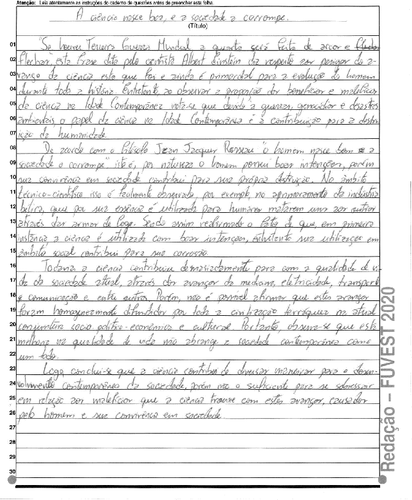 Atenção: Leia atentamente as instruções do caderno de questões antes de preencher esta folha.
A ciência nasce boa, e a sociedade a corrompe.
(Título)
01 "Se houver Terceira Guerra Mundial, a quarta será feita de arcos e
02 flechas", esta frase dita pelo cientista Albert Einstein diz respeito
03 ciência este que foi e ainda é primordial para a evolução do homem
04 durante toda a história. Entretanto ao observar a proporção dos benefícios e malefícios
05 da ciência na Idade Contemporânea nota-se que devido a guerras, genocídios e desastres
06 ambientais o papel da ciência na Idade Contemporânea é a contribuição para a destrui-
07 ção da humanidade.
08 De acordo com o filósofo Jean Jacques Rousseau "o homem nasce bom e a
09 sociedade o corrompe" isto é, por natureza o homem possui boas intenções, porém
10 sua convivência em sociedade contribui para sua própria destruição. No âmbito
11 técnico-científico isto é facilmente observado, por exemplo, no aprimoramento da indústria
12 bélica, que por sua essência é utilizada para humanos matarem uns aos outros
13 através das armas de fogo. Sendo assim o fato de que, em primeira
14 instância a ciência é utilizada com boas intenções, entretanto sua utilização em
15 âmbito social contribui para sua corrosão.
16 Todavia a ciência contribuiu demasiadamente para com a qualidade de vi-
17 da da sociedade atual, através dos avanços da medicina, eletricidade, transporte
18 e comunicação e entre outros. Porém, não é possível afirmar que estes avanços
19 foram homogeneamente difundidos por toda a civilização na atual
20 conjuntura sócio político-econômica e cultural. Portanto, observa-se que esta
21 melhoria na qualidade de vida não abrange a sociedade contemporânea como
22 um todo.
23 Logo, conclui-se que a ciência contribui de diversas maneiras para o desen-
24 volvimento contemporâneo da sociedade, porém não o suficiente para se sobressair
25 em relação aos malefícios que a ciência trouxe com estes avanços, causados
26 pelo homem e sua convivência em sociedade.
27
28
29
30
Redação – FUVEST 2020